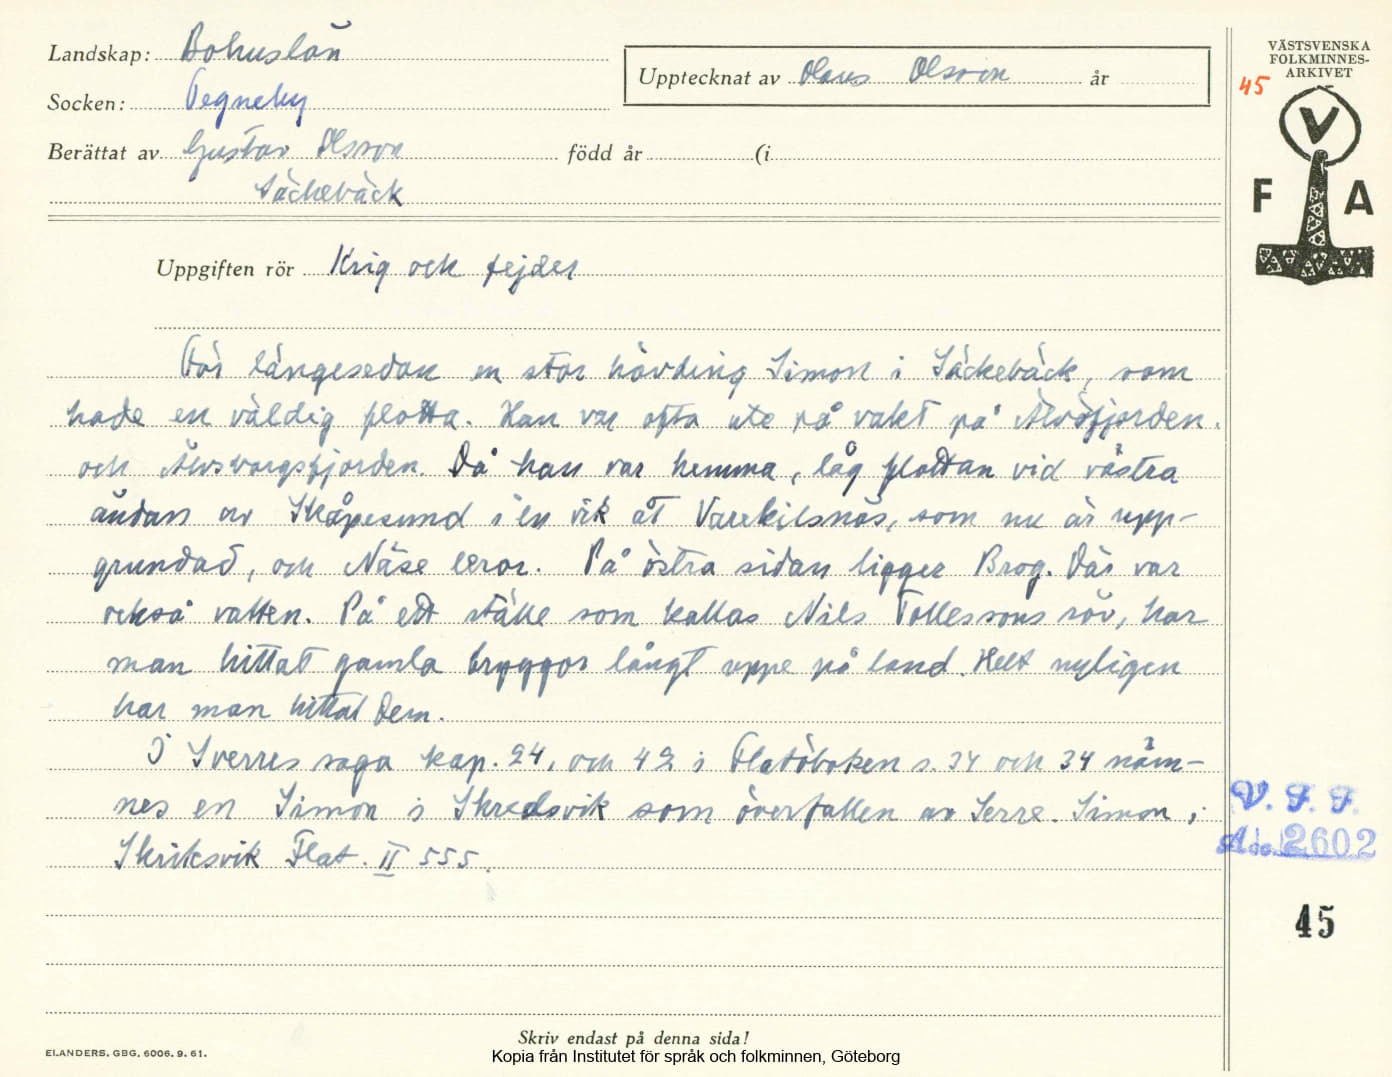 Landskap: Bohuslän
Socken: Tegneby
Berättat av Gustav Olsson född år (i
Säckebäck
Upptecknat av Olaus Olsson år
VÄSTSVENSKA
FOLKMINNES-
ARKIVET
45
V
F A
Uppgiften rör Krig och fejder
För längesedan en stor hövding Simon i Säckebäck, som
hade en väldig flotta. Han var ofta ute på vakt på Älvöfjorden
och Älvsborgsfjorden. Då han var hemma, låg flottan vid västra
ändan av Skåpesund i en vik åt Varekilsnäs, som nu är upp-
grundad, och Näse leror. På östra sidan ligger Brog. Där var
också vatten. På ett ställe som kallas Nils Tollessons röv, har
man hittat gamla bryggor långt uppe på land. Helt nyligen
har man hittat dem.
I Sverres saga kap. 24, och 42 i Flatöboken s. 34 och 34 näm-
nes en Simon i Skredsvik som överfallen av Serre. Simon i
Skriksvik Flat. II 555.
V. F. F.
Acc. 2602
45
Skriv endast på denna sida!
ELANDERS, GBG, 6006. 9. 61.
Kopia från Institutet för språk och folkminnen, Göteborg